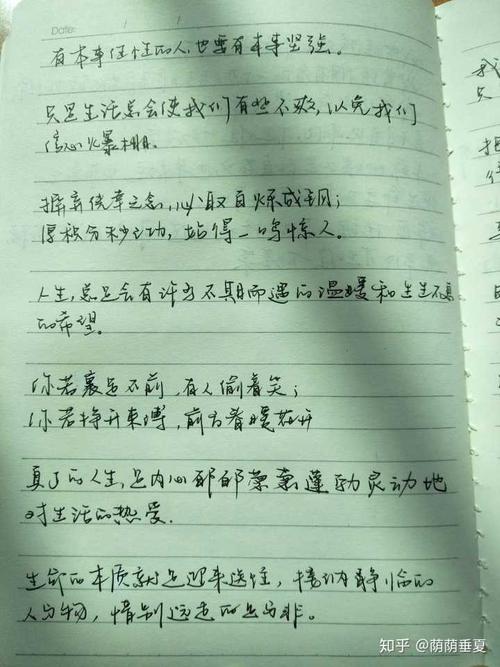 Date: / /
有本事任性的人,也要有本事坚强。
只是生活总会使我们有些不爽,以免我们
信心爆棚。
摒弃侥幸之念,必取百炼成钢;
厚积分秒之功,始得一鸣惊人。
人生,总是会有许多不期而遇的温暖和生生不息
的希望。
你若裹足不前,有人偷着笑;
你若挣开束缚,前方春暖花开
真正的人生,是内心郁郁蓬勃灵动地
对生活的热爱.
生命的本质就是迎来送往,接纳静临的
人与物,惜别远走的是与非。
知乎 @荫荫垂夏